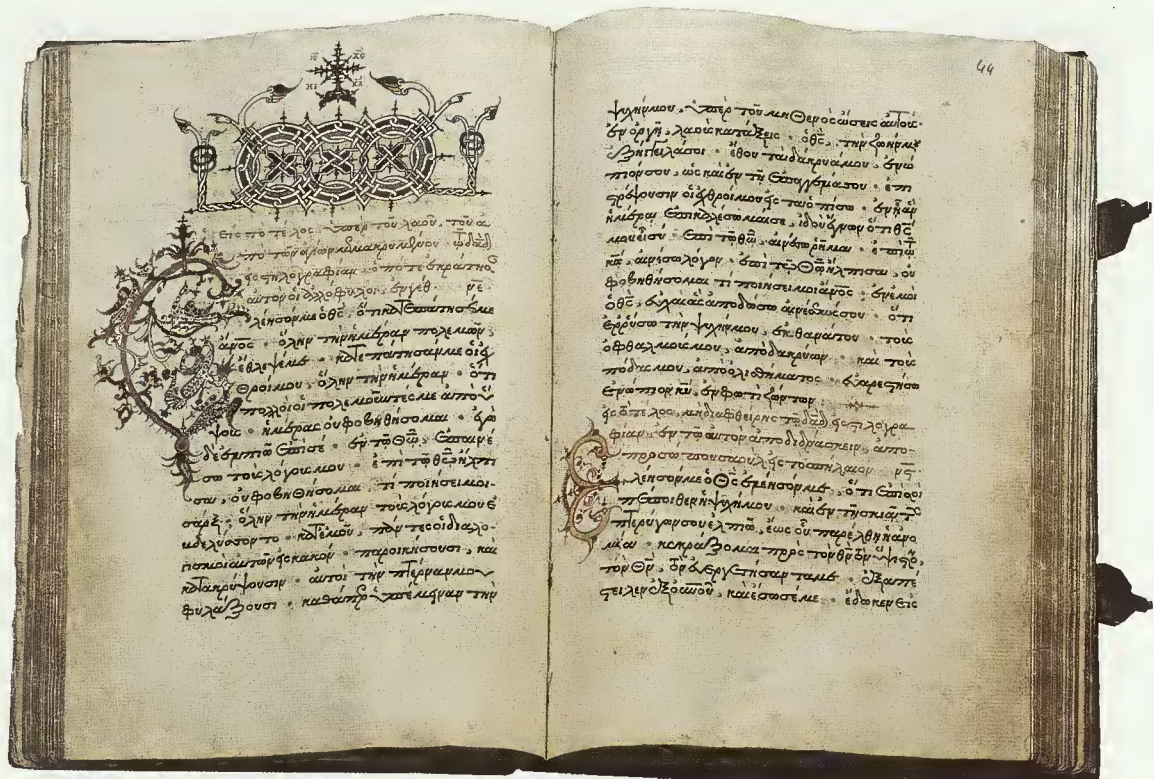 ΙϹ ΧϹ
ΝΙ ΚΑ
Εἰς τὸ τέλος · ὑπὲρ τοῦ λαοῦ, τοῦ ἀ
πὸ τῶν ἁγίων μεμακρυμμένου · τῷ δαδ
εἰς στηλογραφίαν · ὁπότε ἐκράτησ
αὐτὸν οἱ ἀλλόφυλοι, ἐν γεθ · νε ·
Ἐλέησόν με ὁ θς, ὅτι κατεπάτησέ με
ἄνος · ὅλην τὴν ἡμέραν πολεμῶν,
ἔθλιψέ με · κατεπάτησάν με οἱ ἐχ
θροί μου, ὅλην τὴν ἡμέραν · ὅτι
πολλοὶ οἱ πολεμοῦντές με ἀπὸ ὕ
ψους · ἡμέρας οὐ φοβηθήσομαι · ἐγὼ
δὲ ἐλπιῶ ἐπὶ σέ · ἐν τῷ θῷ, ἐπαινέ
σω τοὺς λόγους μου · ἐπὶ τῷ θῷ ἤλπι
σα, οὐ φοβηθήσομαι τί ποιήσει μοι
σάρξ · ὅλην τὴν ἡμέραν τοὺς λόγους μου ἐ
βδελύσσοντο · κατ' ἐμοῦ, πάντες οἱ διαλο
γισμοὶ αὐτῶν εἰς κακόν · παροικήσουσι, καὶ
κατακρύψουσιν · αὐτοὶ τὴν πτέρναν μου
φυλάξουσι · καθάπερ ὑπέμειναν τὴν
44
ψυχήν μου · ὑπὲρ τοῦ μηθενὸς ὤσεις αὐτούς ·
ἐν ὀργῇ, λαοὺς κατάξεις · ὁ θς, τὴν ζωήν μου
ἐξήγγειλά σοι · ἔθου τὰ δάκρυά μου, ἐνώ
πιόν σου, ὡς καὶ ἐν τῇ ἐπαγγελίᾳ σου · ἐπι
στρέψουσιν οἱ ἐχθροί μου εἰς τὰ ὀπίσω · ἐν ᾗ ἂν
ἡμέρᾳ ἐπικαλέσωμαί σε, ἰδοὺ ἔγνων ὅτι θς
μου εἶ σύ · ἐπὶ τῷ θῷ, αἰνέσω ῥῆμα · ἐπὶ τῷ
κῷ, αἰνέσω λόγον · ἐπὶ τῷ θῷ ἤλπισα, οὐ
φοβηθήσομαι τί ποιήσει μοι ἄνος · ἐν ἐμοὶ
ὁ θς, εὐχαὶ ἃς ἀποδώσω αἰνέσεώς σου · ὅτι
ἐρρύσω τὴν ψυχήν μου, ἐκ θανάτου · τοὺς
ὀφθαλμούς μου, ἀπὸ δακρύων · καὶ τοὺς
πόδας μου, ἀπὸ ὀλισθήματος · εὐαρεστήσω
ἐνώπιον κυ, ἐν φωτὶ ζώντων ·
εἰς τὸ τέλος, μὴ διαφθείρῃς τῷ δαδ εἰς στηλογρα
φίαν · ἐν τῷ αὐτὸν ἀποδιδράσκειν, ἀπὸ
προσώπου σαοὺλ εἰς τὸ σπήλαιον · νς ·
Ἐλέησόν με ὁ θς ἐλέησόν με, ὅτι ἐπὶ σοὶ
πέποιθεν ἡ ψυχή μου · καὶ ἐν τῇ σκιᾷ τῶν
πτερύγων σου ἐλπιῶ, ἕως οὗ παρέλθῃ ἡ ἀνο
μία · κεκράξομαι πρὸς τὸν θν τὸν ὕψιστον,
τὸν θν, τὸν εὐεργετήσαντά με · ἐξαπέ
στειλεν ἐξ οὐνοῦ, καὶ ἔσωσέ με · ἔδωκεν εἰς